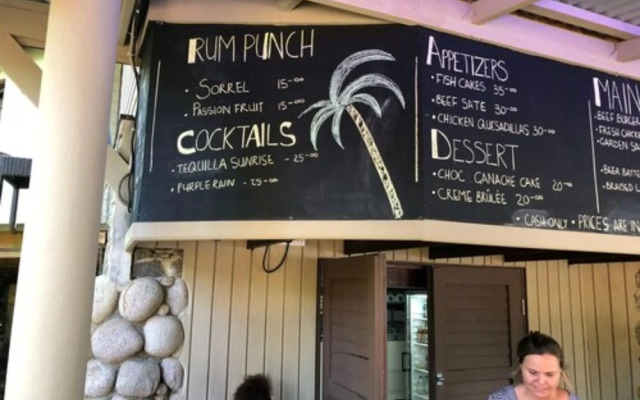 RUM PUNCH
• SORREL 15-00
• PASSION FRUIT 15-00
COCKTAILS
• TEQUILLA SUNRISE - 25-00
• PURPLE RAIN - 25-00
APPETIZERS
• FISH CAKES 35-00
• BEEF SATE 30-00
• CHICKEN QUESADILLAS 30-00
DESSERT
• CHOC. GANACHE CAKE 20-00
• CREME BRÛLÉE 20-00
• CASH ONLY • PRICES ARE IN
MAIN
• BEEF BURGER
• FRESH CHICKE
• GARDEN SA
• BEER BATTE
• BRAISED